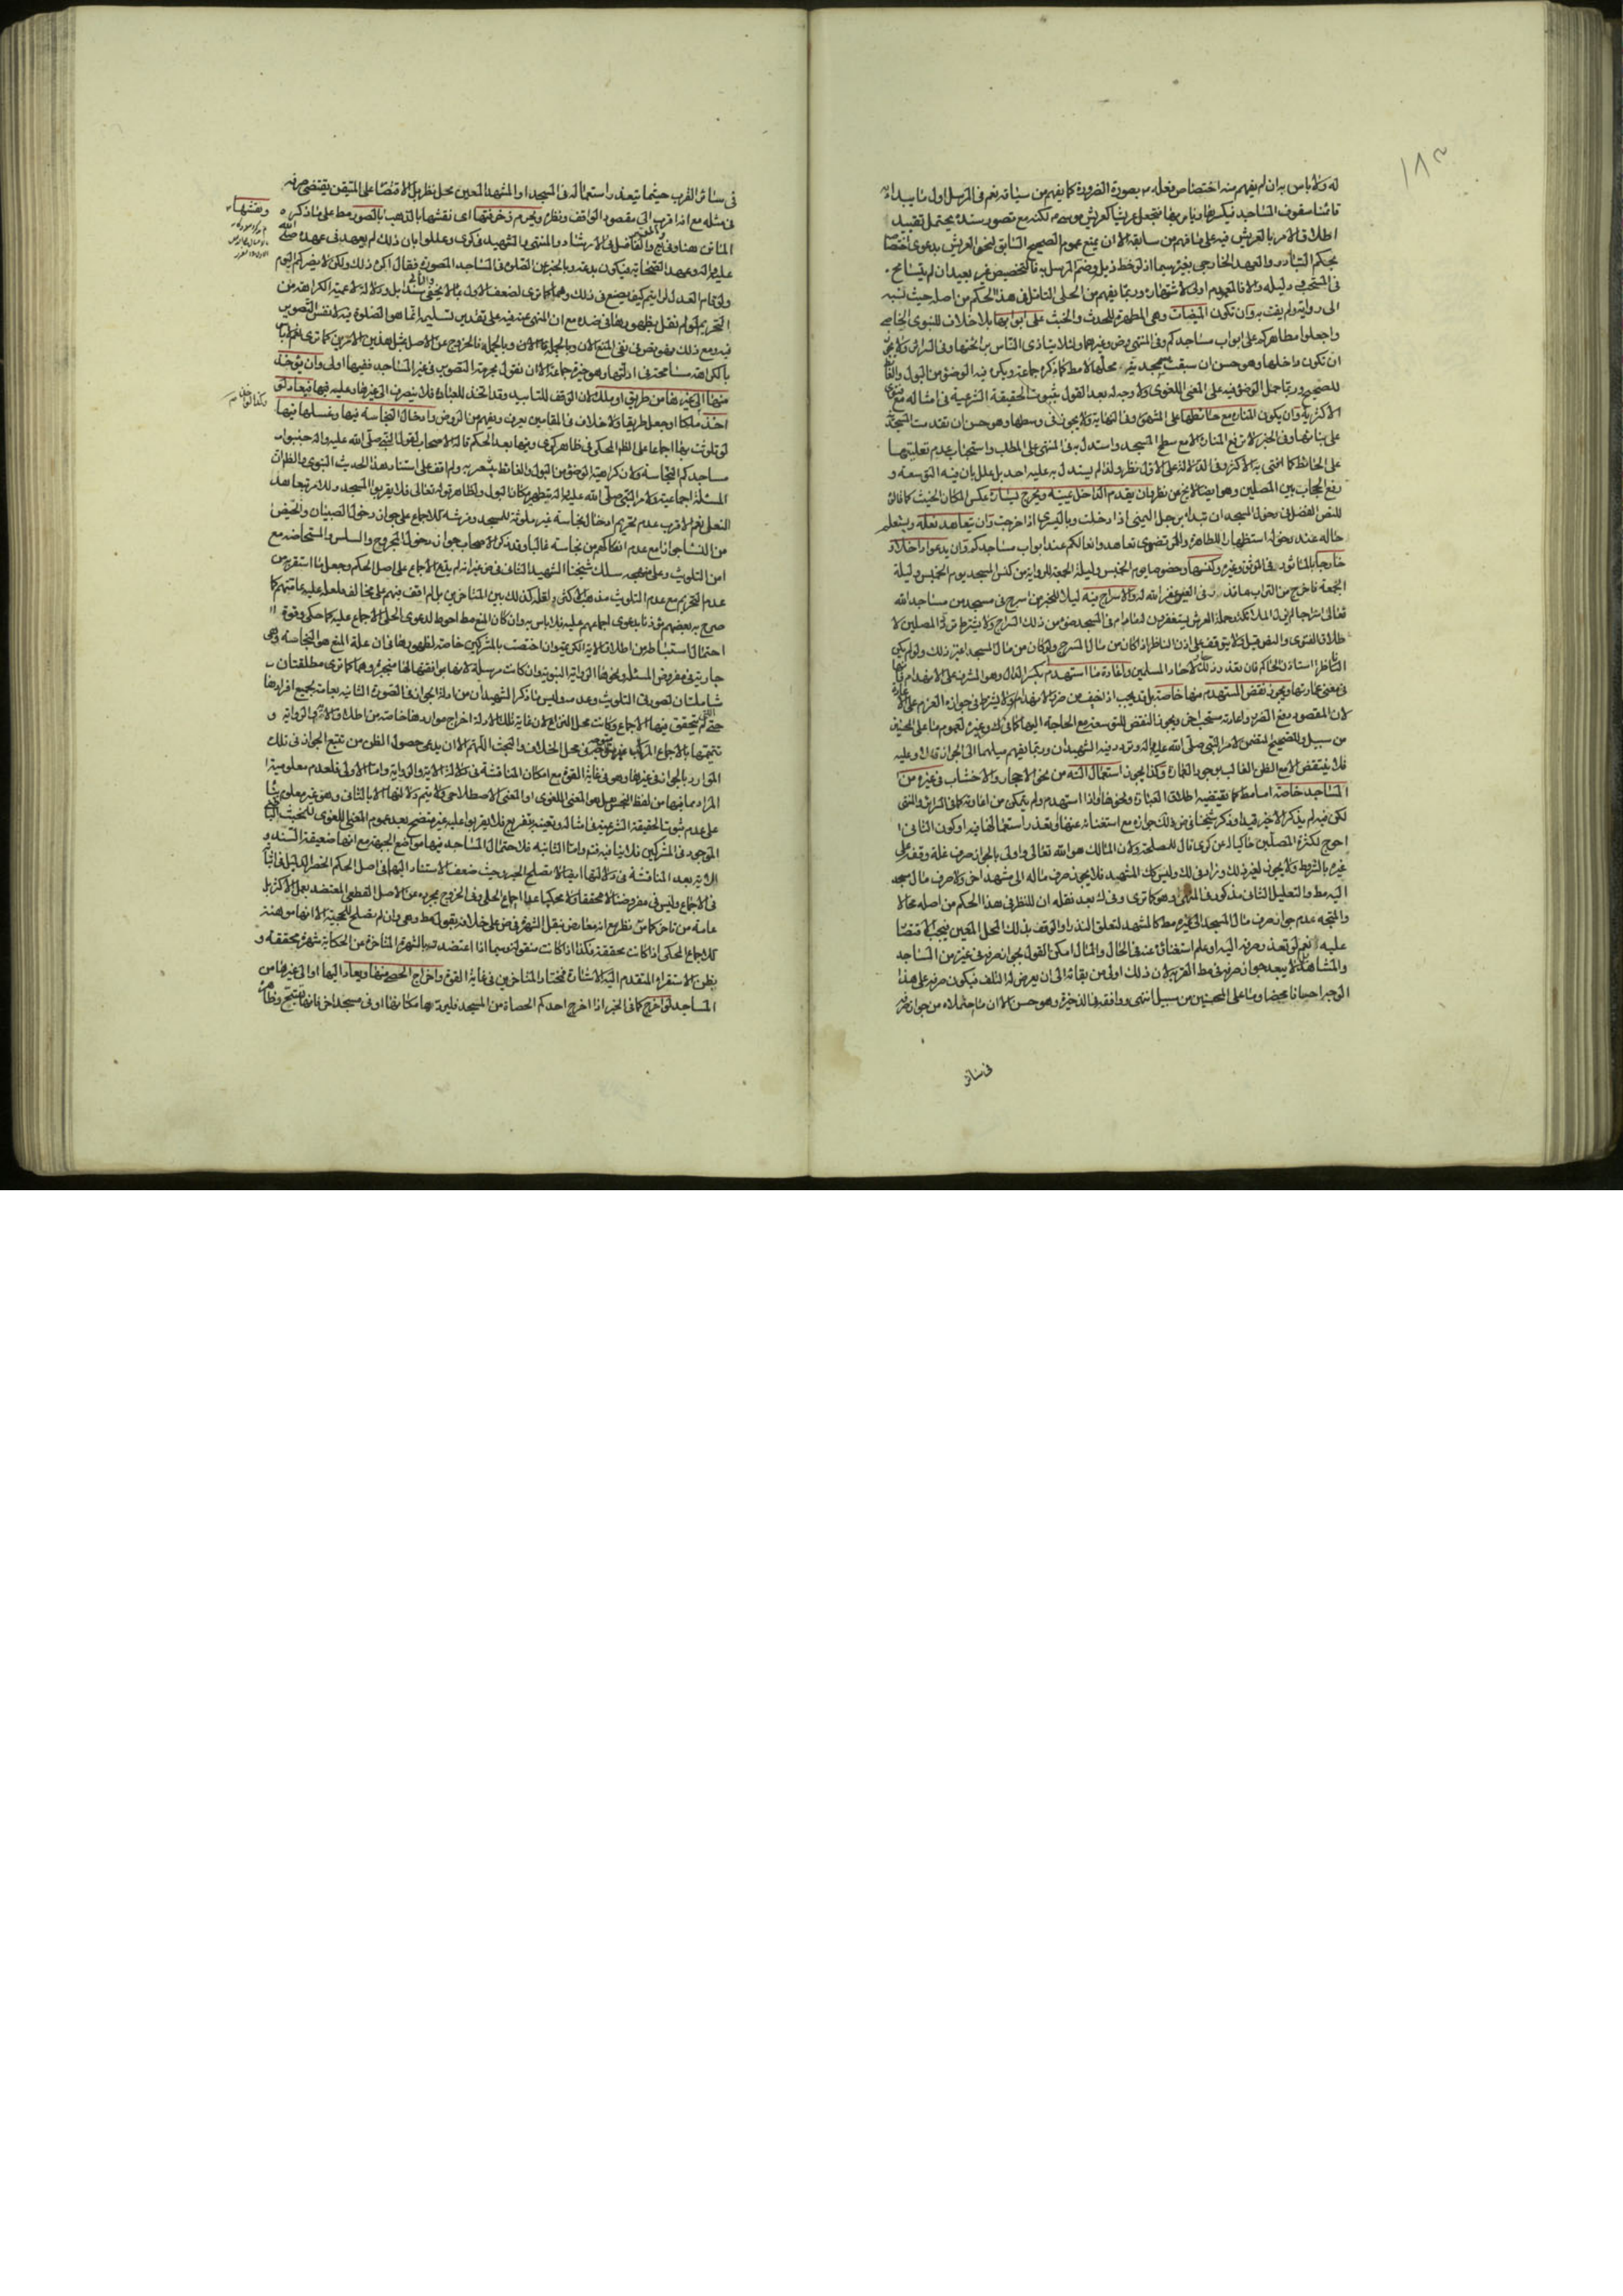 له ولا باس به ان لم يفهم منه اختصاص فعله بصورة الضرورة كما يفهم من سياقه نعم في المرسل اول ما يبدا به
قائمنا سقوف المساجد فيكسرها ويامر بها فتجعل عريشا كعريش موسى لكنه مع قصور سنده يحتمل تقييد
اطلاق الامر بالعريش فيه على ما فهم من سابقه الا ان يمنع عموم الصحيح السابق لنحو العريش بدعوى اختصاصه
بحكم التبادر والعهد الخارجي بغيره سيما اذا لوحظ ذيله وضم المرسل به فالتخصيص غير بعيد ان لم يتسامح
في المستحب ودليله والا فالعموم اولى لاشتهاره وربما يفهم من الحلي التامل في هذا الحكم من اصله حيث نسبه
الى رواية ولم يفت به وان تكون الميضات وهي المطهرة للحدث والخبث على ابوابها بلا خلاف للنبوي الخاصي
واجعلوا مطاهركم على ابواب مساجدكم وفي المنتهى وض وغيرهما ولئلا يتاذى الناس برائحتها وفي السرائر ولا يجوز
ان تكون داخلها وهو حسن ان سبقت المسجدية محلها لا مطلقا كما ذكره جماعة ويكره فيه الوضوء من البول والغائط
للصحيح وربما حمل الوضوء فيه على المعنى اللغوي ولا وجه له بعد القول بثبوت الحقيقة الشرعية في امثاله مع فتوى
الاكثر به وان يكون المنارة مع حائطها على المشهور وفي النهاية ولا يجوز في وسطها وهو حسن ان تقدمت المسجدية
على بنائها وفي الخبر لا ترفع المنارة الا مع سطح المسجد واستدل به في المنتهى على المطلب واستحباب عدم تعليتها
على الحائط كما افتى به الاكثر وفي الدلالة على الاول نظر ولذا لم يستدل به عليه احد بل علل بان فيه التوسعة و
رفع الحجاب بين المصلين وهو ايضا لا يخ عن نظر وان يقدم الداخل يمينه ويخرج يساره عكس المكان الخبيث كما قالوه
للنص الفضل في دخول المسجد ان تبدا برجلك اليمنى اذا دخلت وباليسرى اذا خرجت وان يتعاهد نعله ويستعلم
حاله عند دخوله استظهارا للطهارة والمرتضوي تعاهدوا نعالكم عند ابواب مساجدكم وان يدعو داخلا و
خارجا بالماثور في الموثق وغيره وكنسها وخصوصا يوم الخميس وليلة الجمعة للرواية من كنس المسجد يوم الخميس وليلة
الجمعة فاخرج من التراب ما تذر في العين غفر الله له والاسراج فيه ليلا للخبر من اسرج في مسجد من مساجد الله
تعالى سراجا لم يزل الملائكة وحملة العرش يستغفرون له ما دام في المسجد ضوء من ذلك السراج ولا يشترط تردد المصلين لا
طلاق الفتوى والنص قيل ولا يتوقف على اذن الناظر اذا كان من مال المسرج ولو كان من مال المسجد اعتبر ذلك ولو لم يكن
الناظر استاذن الحاكم فان تعذر وذلك لاحاد المسلمين واعادة ما استهدم بكسر الدال وهو المشرف على الانهدام فانها
في معنى عمارتها ويجوز نقض المستهدم منها خاصة بل قد يجب اذا خيف من ضرر الانهدام ولا يشترط في جوازه العزم على الاعادة
لان المقصود دفع الضرر واعادته مستحب اخر ويجوز النقض للتوسعة مع الحاجة اليها كما في ك وغيره لعموم ما على المحسنين
من سبيل وللصحيح المتضمن لامر النبي صلى الله عليه واله وتردد فيه الشهيدان وربما يفهم ميلهما الى الجواز وعليه
فلا ينتقض الا مع الظن الغالب بوجود العمارة وكذا يجوز استعمال الته من نحو الاحجار والاخشاب في غيره من
المساجد خاصة اما مط كما يقتضيه اطلاق العبارة ونحوها او اذا استهدم ولم يتمكن من اعادته كما في السرائر والمنتهى
لكن فيه لم يذكر الاخير قيدا وذكر شيخنا في ض ذلك جوازه مع استغنائه عنها او تعذر استعمالها فيه او كون الثاني ا
احوج لكثرة المصلين حاكيا له عن كرى قال للمصلحة ولان المالك هو الله تعالى واولى بالجواز صرف غلة وقفه على
غيره بالشروط ولا يجوز لغير ذلك وزاد في لك وليس كك المشهد فلا يجوز صرف ماله الى مشهد اخر ولا صرف مال مسجد
اليه مط والتعليل الثاني مذكور في المنتهى وهو كما ترى وفي ك بعد نقله ان للنظر في هذا الحكم من اصله مجالا
والمتجه عدم جواز صرف مال المسجد الى غيره مط كالمشهد لتعلق النذر او الوقف بذلك المحل المعين فيجب الاقتصار
عليه نعم لو تعذر صرفه اليه او علم استغناؤه عنه في الحال والمال امكن القول بجواز صرفه في غيره من المساجد
والمشاهد بل لا يبعد جواز صرفه في مط القرب لان ذلك اولى من بقائه الى ان يعرض له التلف فيكون صرفه على هذا
الوجه احسانا محضا وما على المحسنين من سبيل انتهى ووافقه في الذخيرة وهو حسن الا ان ما احتملاه من جواز صرفه
في سائر
في سائر القرب حيثما يتعذر استعماله في المسجد او المشهد المعين محل نظر بل الاقتصار على المتيقن يقتضي صرفه
في مثله مع انه اقرب الى مقصود الواقف ونظره ويحرم زخرفتها اي نقشها بالذهب بالصور مط على ما ذكره
الماتن هنا وفي يع والفاضل في الارشاد والمنتهى والشهيد في كرى وعللوا بان ذلك لم يعهد في عهده صلى الله
عليه واله وعهد الصحابة فيكون بدعة وبالخبر عن الصلوة في المساجد المصورة فقال اكره ذلك ولكن لا يضركم اليوم
ولو قام العدل لرايتم كيف يصنع في ذلك وهما كما ترى لضعف الاول بما لا يخفى والثاني سندا بل ودلالة لاعمية الكراهة من
التحريم لو لم نقل بظهورها في ضده مع ان المنهى عنه فيه على تقدير تسليمه انما هو الصلوة فيه لا نفس التصوير
فيه ومع ذلك
بالكراهة مسامحة في ادلتها وهو خيرة جماعة الا ان نقول بحرمة التصوير في غير المساجد ففيها اولى وان يؤخذ
منها الى غيرها من طريق او ملك لان الوقف للتابيد وقد اتخذ للعبادة فلا ينصرف الى غيرها وعليه فيها فيعاد لو
اخذ ملكا او جعل طريقا ولا خلاف في المقامين يعرف ويفهم من الروض وادخال النجاسة فيها وغسلها فيها
لو تلوثت بها اجماعا على الظ المحكي في ظاهر كرى وفيها بعد الحكم قاله الاصحاب لقول النبي صلى الله عليه واله جنبوا
مساجدكم النجاسة ولان كراهية الوضوء من البول والغائط يشعر به ولم اقف على اسناد هذا الحديث النبوي والظ ان
المسئلة اجماعية ولامر النبي صلى الله عليه واله بتطهير مكان البول ولظاهر قوله تعالى فلا يقربوا المسجد وللامر بتعاهد
النعل نعم الاقرب عدم تحريم ادخال نجاسة غير ملوثة للمسجد وفرشه للاجماع على جواز دخول الصبيان والحيض
من النساء اجتيازا مع عدم انفكاكهم من نجاسة غالبا وقد ذكر الاصحاب جواز دخول المجروح والسلس والمستحاضة مع
امن التلويث وعلى منهجه سلك شيخنا الشهيد الثاني في ض غير انه لم يدع الاجماع على اصل الحكم وجعل ما استقربه من
عدم التحريم مع عدم التلويث مذهب الاكثر ولعله كذلك بين المتاخرين بل لم اقف فيهم على مخالف ولعله عليه عامتهم كما
صرح به بعضهم مؤذنا بدعوى اجماعهم عليه فلا باس به وان كان المنع مط احوط لدعوى الحلي الاجماع عليه كما حكي وقوة
احتمال استنباطه من اطلاق الاية الكريمة وان اختصت بالمشركين خاصة لظهورها في ان علة المنع هو النجاسة وهي
جارية في مفروض المسئلة ونحوها الرواية النبوية وان كانت مرسلة لانها موافقتها لها منجبرة وهما كما ترى مطلقتان
شاملتان لصورتي التلويث وعدمه وليس ما ذكره الشهيدان من ادلة الجواز في الصورة الثانية يعارض بجميع افرادها
حتى التي لم يتحقق فيها الاجماع وكانت محل النزاع لان غاية تلك الادلة اخراج مواردها خاصة من اطلاق الاية والرواية و
تتميمها بالاجماع المركب غير متوجه في محل الخلاف والبحث اللهم الا ان يدعى حصول الظن من تتبع الجواز في تلك
الموارد بالجواز في غيرها وهو في غاية القوة مع امكان المناقشة في دلالة الاية والرواية واما الاولى فلعدم معلومية
المراد بما فيها من لفظ النجس هل هو المعنى اللغوي او المعنى الاصطلاحي ولا يتم دلالتها الا بالثاني وهو غير معلوم بناء
على عدم ثبوت الحقيقة الشرعية في امثاله وتعيينه بتفريع فلا يقربوا عليه غير متضح بعد عموم المعنى اللغوي للخبث الباطني
الموجود في المشركين فلا ينافيه فتم واما الثانية فلاحتمال المساجد فيها مواضع الجبهة مع انها ضعيفة السند و
الاية بعد المناقشة في دلالتها ايضا لا تصلح الجبر به حيث ضعف الاستناد اليها في اصل الحكم انحصر الدليل في اثباته
في الاجماع وليس في مفروضنا لا محققا ولا محكيا عدا اجماع الحلي وفي الخروج بمجرده عن الاصل القطعي المعتضد بعمل الاكثر بل
عامة من تاخر كما مر نظر مع انه معارض بنقل الشهرة في ض على خلافه بقول مط وهي وان لم تصلح للحجية الا انها موهنة
للاجماع المحكي اذا كانت محققة فكذا اذا كانت منقولة سيما اذا اعتضدت بالشهرة المتاخرة عن الحكاية شهرة محققة و
بظن الاستقراء المتقدم اليه الاشارة فمختار المتاخرين في غاية القوة واخراج الحصى منها ويعاد اليها او الى غيرها من
المساجد لو اخرج كما في الخبر اذا اخرج احدكم الحصاة من المسجد فليردها مكانها او في مسجد اخر فانها تسبح وظاهره
ونقشها